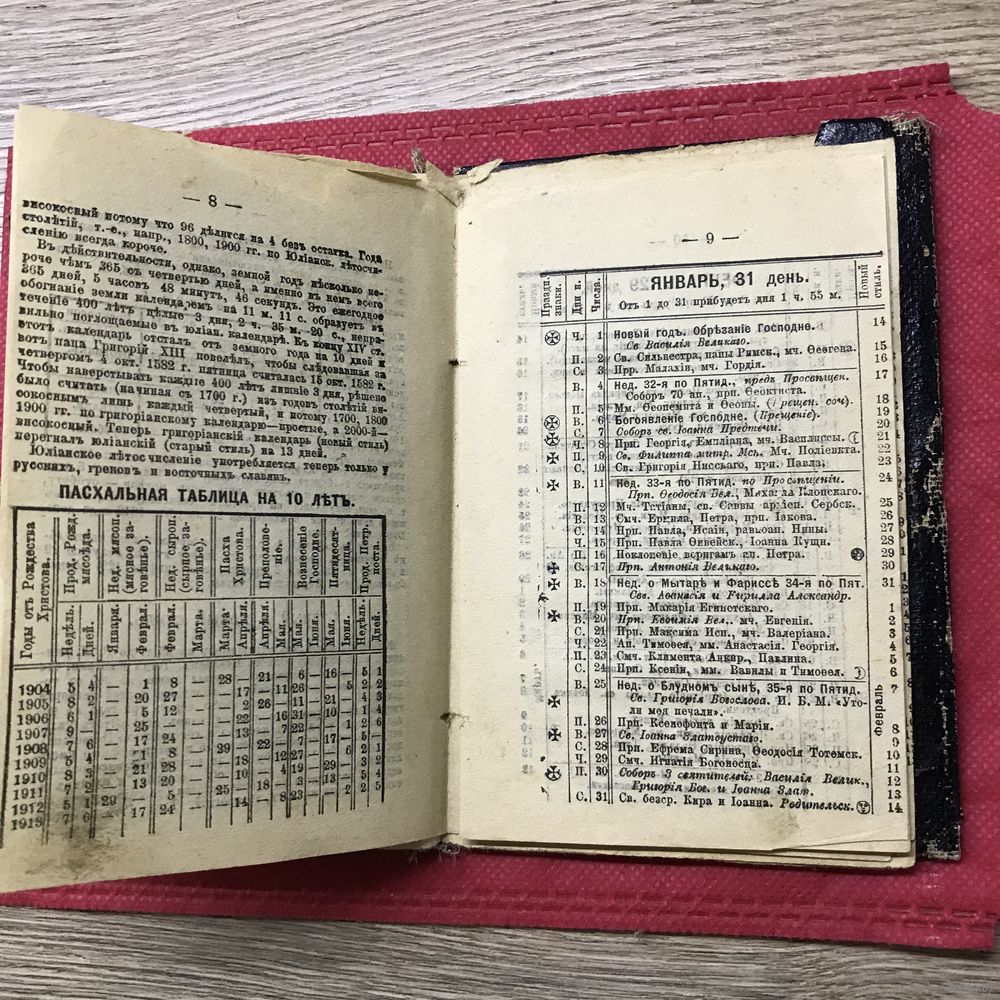 — 8 —
високосный потому что 96 дѣлится на 4 безъ остатка. Года
столѣтій, т.-е., напр., 1800, 1900 гг. по Юліанск. лѣтосчи-
сленію всегда короче.
Въ дѣйствительности, однако, земной годъ нѣсколько ко-
роче чѣмъ 365 съ четвертью дней, а именно въ немъ всего
365 дней, 5 часовъ 48 минутъ, 46 секундъ. Это ежегодное
обогнаніе земли календаремъ на 11 м. 11 с. образуетъ въ
теченіе 400 лѣтъ цѣлые 3 дня, 2 ч. 35 м. 20 с., непра-
вильно поглощаемые въ юліан. календарѣ. Къ концу XIV ст.
этотъ календарь отсталъ отъ земного года на 10 дней и
вотъ папа Григорій XIII повелѣлъ, чтобы слѣдовавшая за
четвергомъ 4 окт. 1582 г. пятница считалась 15 окт. 1582 г.
Чтобы наверстывать каждые 400 лѣтъ лишніе 3 дня, рѣшено
было считать (начиная съ 1700 г.) изъ годовъ столѣтій ви-
сокоснымъ лишь каждый четвертый, и потому 1700, 1800
1900 гг. по григоріанскому календарю—простые, а 2000-й—
високосный. Теперь григоріанскій календарь (новый стиль)
перегналъ юліанскій (старый стиль) на 13 дней.
Юліанское лѣтосчисленіе употребляется теперь только у
русскихъ, грековъ и восточныхъ славянъ.
ПАСХАЛЬНАЯ ТАБЛИЦА НА 10 ЛѢТЪ.
Годы отъ Рождества Христова.
Прод. Рожд. мясоѣда.
Нед. мясоп. (мясное заговѣнье).
Нед. сыроп. (сырное заговѣнье).
Пасха Христова.
Преполовеніе.
Вознесеніе Господне.
Пятидесятница.
Прод. Петр. поста.
Недѣль. Дней. Январи. Феврал. Феврал. Марта. Марта. Апрѣля. Апрѣля. Мая. Мая. Іюня. Мая. Іюня. Недѣль. Дней.
1904 5 4 — 1 8 — 28 — 21 — — 6 — 16 — 5 1
1905 8 2 — 20 27 — — 17 — 11 26 — — 5 2 2
1906 6 1 — 5 12 — — 2 26 — 11 — 21 — 4 3
1907
1908
1909
1910
1911
1912
1913
— 9 —
Праздн. знаки.
Дни н.
Числа.
ЯНВАРЬ, 31 день.
Отъ 1 до 31 прибудетъ дня 1 ч. 55 м.
Новый стиль.
Ч. 1 Новый годъ. Обрѣзаніе Господне. 14
Св Василія Великаго.
П. 2 Св. Сильвестра, папы Римск., мч. Ѳеогена. 15
С. 3 Прр. Малахіи, мч. Гордія. 16
В. 4 Нед. 32-я по Пятид., предъ Просвѣщен. 17
Соборъ 70 ап., прп. Ѳеоктиста.
П. 5 Мм. Ѳеопемпта и Ѳеоны. (Крещен. соч) 18
В. 6 Богоявленіе Господне. (Крещеніе). 19
С. 7 Соборъ св. Іоанна Предтечи. 20
Ч. 8 Прп. Георгія, Емиліана, мч. Василиссы. 21
П. 9 Св. Филиппа митр. Мск. Мч. Поліевкта. 22
С. 10 Св. Григорія Нисскаго, прп. Павла. 23
В. 11 Нед. 33-я по Пятид. по Просвѣщеніи. 24
Прп. Ѳеодосія Вел., Михаила Клопскаго.
П. 12 Мч. Татіаны, св. Саввы архіеп. Сербск. 25
В. 13 Смч. Ермила, Петра, прп. Іакова. 26
С. 14 Прп. Павла, Исаіи, равноап. Нины. 27
Ч. 15 Прп. Павла Ѳивейск., Іоанна Кущн. 28
П. 16 Поклоненіе веригамъ ап. Петра. 29
С. 17 Прп. Антонія Великаго. 30
В. 18 Нед. о Мытарѣ и Фарисеѣ 34-я по Пят. 31
Свв. Аѳанасія и Кирилла Александр.
П. 19 Прп. Макарія Египетскаго. 1
В. 20 Прп. Евѳимія Вел., мч. Евгенія. 2
С. 21 Прп. Максима Исп., мч. Валеріана. 3
Ч. 22 Ап. Тимоѳея, мм. Анастасія. Георгія. 4
П. 23 Смч. Климента Анкир., Павлина. 5
С. 24 Прп. Ксеніи, мм. Вавилы и Тимоѳея. 6
В. 25 Нед. о Блудномъ сынѣ, 35-я по Пятид. 7
Св. Григорія Богослова. И. Б. М. «Уто-
ли моя печали».
Февраль
П. 26 Прп. Ксенофонта и Маріи. 8
В. 27 Св. Іоанна Златоустаго. 9
С. 28 Прп. Ефрема Сирина, Ѳеодосія Тотемск. 10
Ч. 29 Смч. Игнатія Богоносца. 11
П. 30 Соборъ 3 святителей: Василія Велик., 12
Григорія Бог. и Іоанна Злат. 13
С. 31 Св. безср. Кира и Іоанна. Родительск. 14